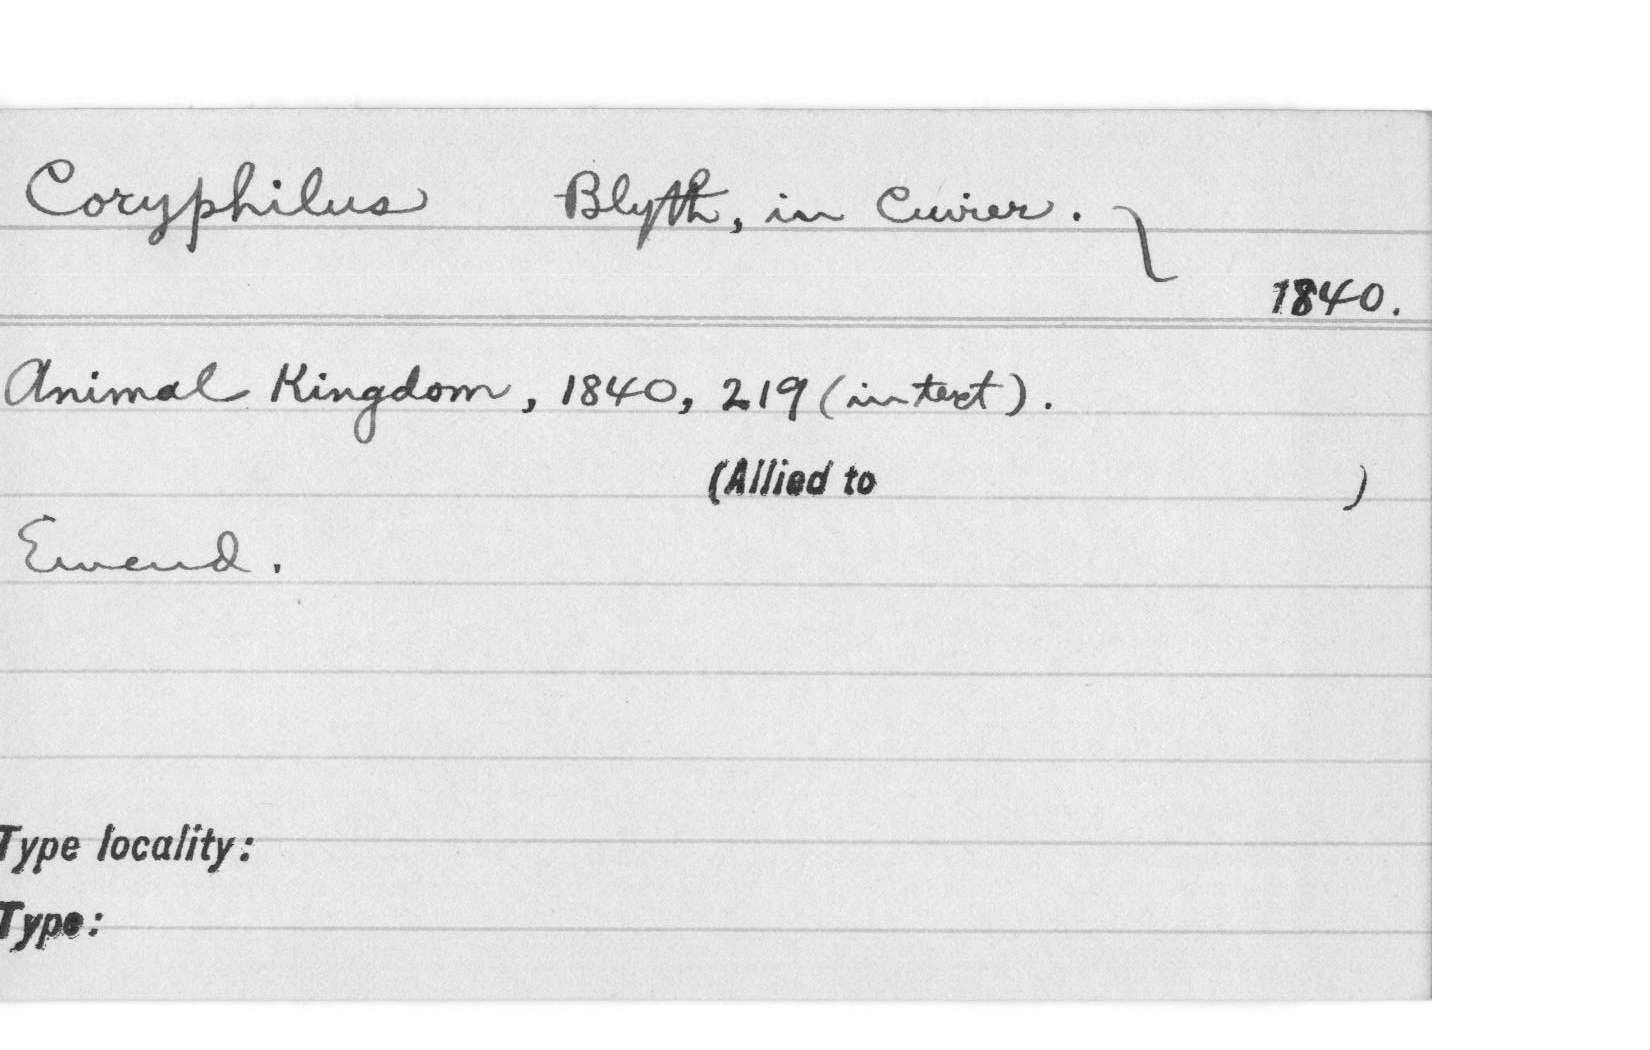 Coryphilus Blyth, in Cuvier.
1840.
Animal Kingdom, 1840, 219 (in text).
(Allied to )
Emend.
Type locality:
Type: